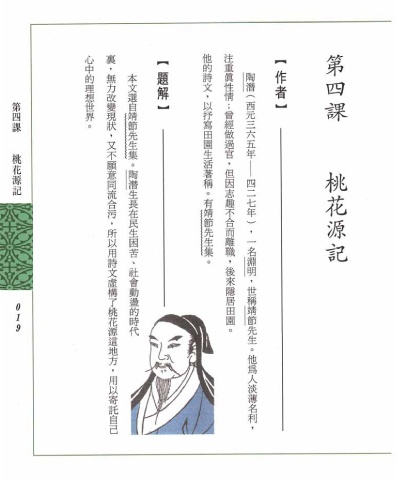 第四課　桃花源記
【作者】
陶潛（西元三六五年——四二七年），一名淵明，世稱靖節先生。他爲人淡薄名利，
注重眞性情；曾經做過官，但因志趣不合而離職，後來隱居田園。
他的詩文，以抒寫田園生活著稱。有靖節先生集。
【題解】
本文選自靖節先生集。陶潛生長在民生困苦、社會動盪的時代
裏，無力改變現狀，又不願意同流合污，所以用詩文虛構了桃花源這地方，用以寄託自己
心中的理想世界。
第四課　桃花源記
019